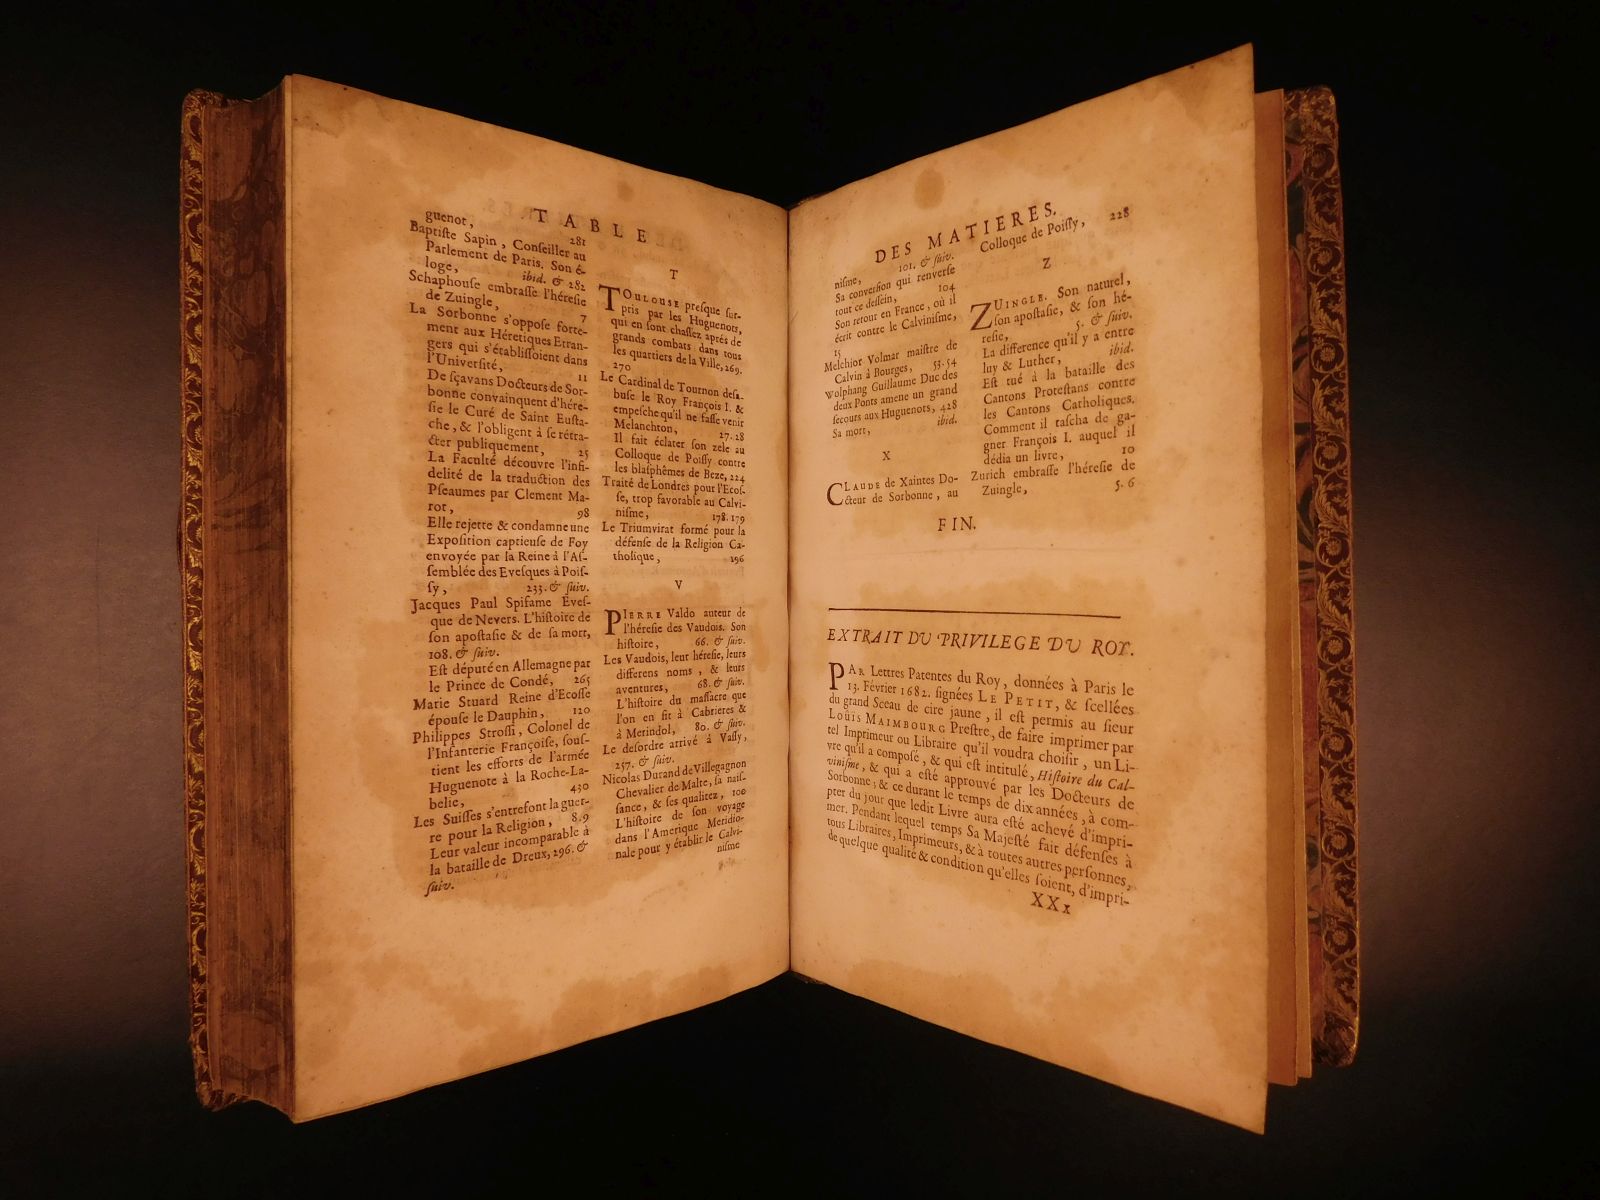 TABLE
guenot, 281
Baptiste Sapin, Conseiller au
Parlement de Paris. Son é-
loge, ibid. & 282
Schaphouse embrasse l'héresie
de Zuingle, 7
La Sorbonne s'oppose forte-
ment aux Hérétiques Etran-
gers qui s'établissoient dans
l'Université, 11
De sçavans Docteurs de Sor-
bonne convainquent d'hére-
sie le Curé de Saint Eusta-
che, & l'obligent à se rétra-
cter publiquement, 25
La Faculté découvre l'infi-
delité de la traduction des
Pseaumes par Clement Ma-
rot, 98
Elle rejette & condamne une
Exposition captieuse de Foy
envoyée par la Reine à l'As-
semblée des Evesques à Pois-
sy, 233. & suiv.
Jacques Paul Spifame Eves-
que de Nevers. L'histoire de
son apostasie & de sa mort,
108. & suiv.
Est député en Allemagne par
le Prince de Condé, 265
Marie Stuard Reine d'Ecosse
épouse le Dauphin, 120
Philippes Strossi, Colonel de
l'Infanterie Françoise, sous-
tient les efforts de l'armée
Huguenote à la Roche-La-
belie, 430
Les Suisses s'entrefont la guer-
re pour la Religion, 8.9
Leur valeur incomparable à
la bataille de Dreux, 296. &
suiv.
T
TOULOUSE presque sur-
pris par les Huguenots,
qui en sont chassez aprés de
grands combats dans tous
les quartiers de la Ville, 269.
270
Le Cardinal de Tournon desa-
buse le Roy François I. &
empesche qu'il ne fasse venir
Melanchton, 27.28
Il fait éclater son zele au
Colloque de Poissy contre
les blasphêmes de Beze, 224
Traité de Londres pour l'Ecos-
se, trop favorable au Calvi-
nisme, 178. 179
Le Triumvirat formé pour la
défense de la Religion Ca-
tholique, 196
V
PIERRE Valdo auteur de
l'héresie des Vaudois. Son
histoire, 66. & suiv.
Les Vaudois, leur héresie, leurs
differens noms, & leurs
aventures, 68. & suiv.
L'histoire du massacre que
l'on en fit à Cabrieres &
à Merindol, 80. & suiv.
Le desordre arrivé à Vassy,
257. & suiv.
Nicolas Durand de Villegagnon
Chevalier de Malte, sa nais-
sance, & ses qualitez, 100
L'histoire de son voyage
dans l'Amerique Meridio-
nale pour y établir le Calvi-
nisme
DES MATIERES.
nisme, 101. & suiv.
Sa conversion qui renverse
tout ce dessein, 104
Son retour en France, où il
écrit contre le Calvinisme,
15
Melchior Volmar maistre de
Calvin à Bourges, 53.54
Wolphang Guillaume Duc des
deux Ponts amene un grand
secours aux Huguenots, 428
Sa mort, ibid.
X
CLAUDE de Xaintes Do-
cteur de Sorbonne, au
Colloque de Poissy, 228
Z
ZUINGLE. Son naturel,
son apostasie, & son hé-
resie, 5. & suiv.
La difference qu'il y a entre
luy & Luther, ibid.
Est tué à la bataille des
Cantons Protestans contre
les Cantons Catholiques.
Comment il tascha de ga-
gner François I. auquel il
dédia un livre, 10
Zurich embrasse l'héresie de
Zuingle, 5. 6
FIN.
EXTRAIT DU PRIVILEGE DU ROY.
PAR Lettres Patentes du Roy, données à Paris le
13. Février 1682. signées LE PETIT, & scellées
du grand Sceau de cire jaune, il est permis au sieur
Loüis MAIMBOURG Prestre, de faire imprimer par
tel Imprimeur ou Libraire qu'il voudra choisir, un Li-
vre qu'il a composé, & qui est intitulé, Histoire du Cal-
vinisme, & qui a esté approuvé par les Docteurs de
Sorbonne; & ce durant le temps de dix années, à com-
pter du jour que ledit Livre aura esté achevé d'impri-
mer. Pendant lequel temps Sa Majesté fait défenses à
tous Libraires, Imprimeurs, & à toutes autres personnes,
de quelque qualité & condition qu'elles soient, d'impri-
XXx